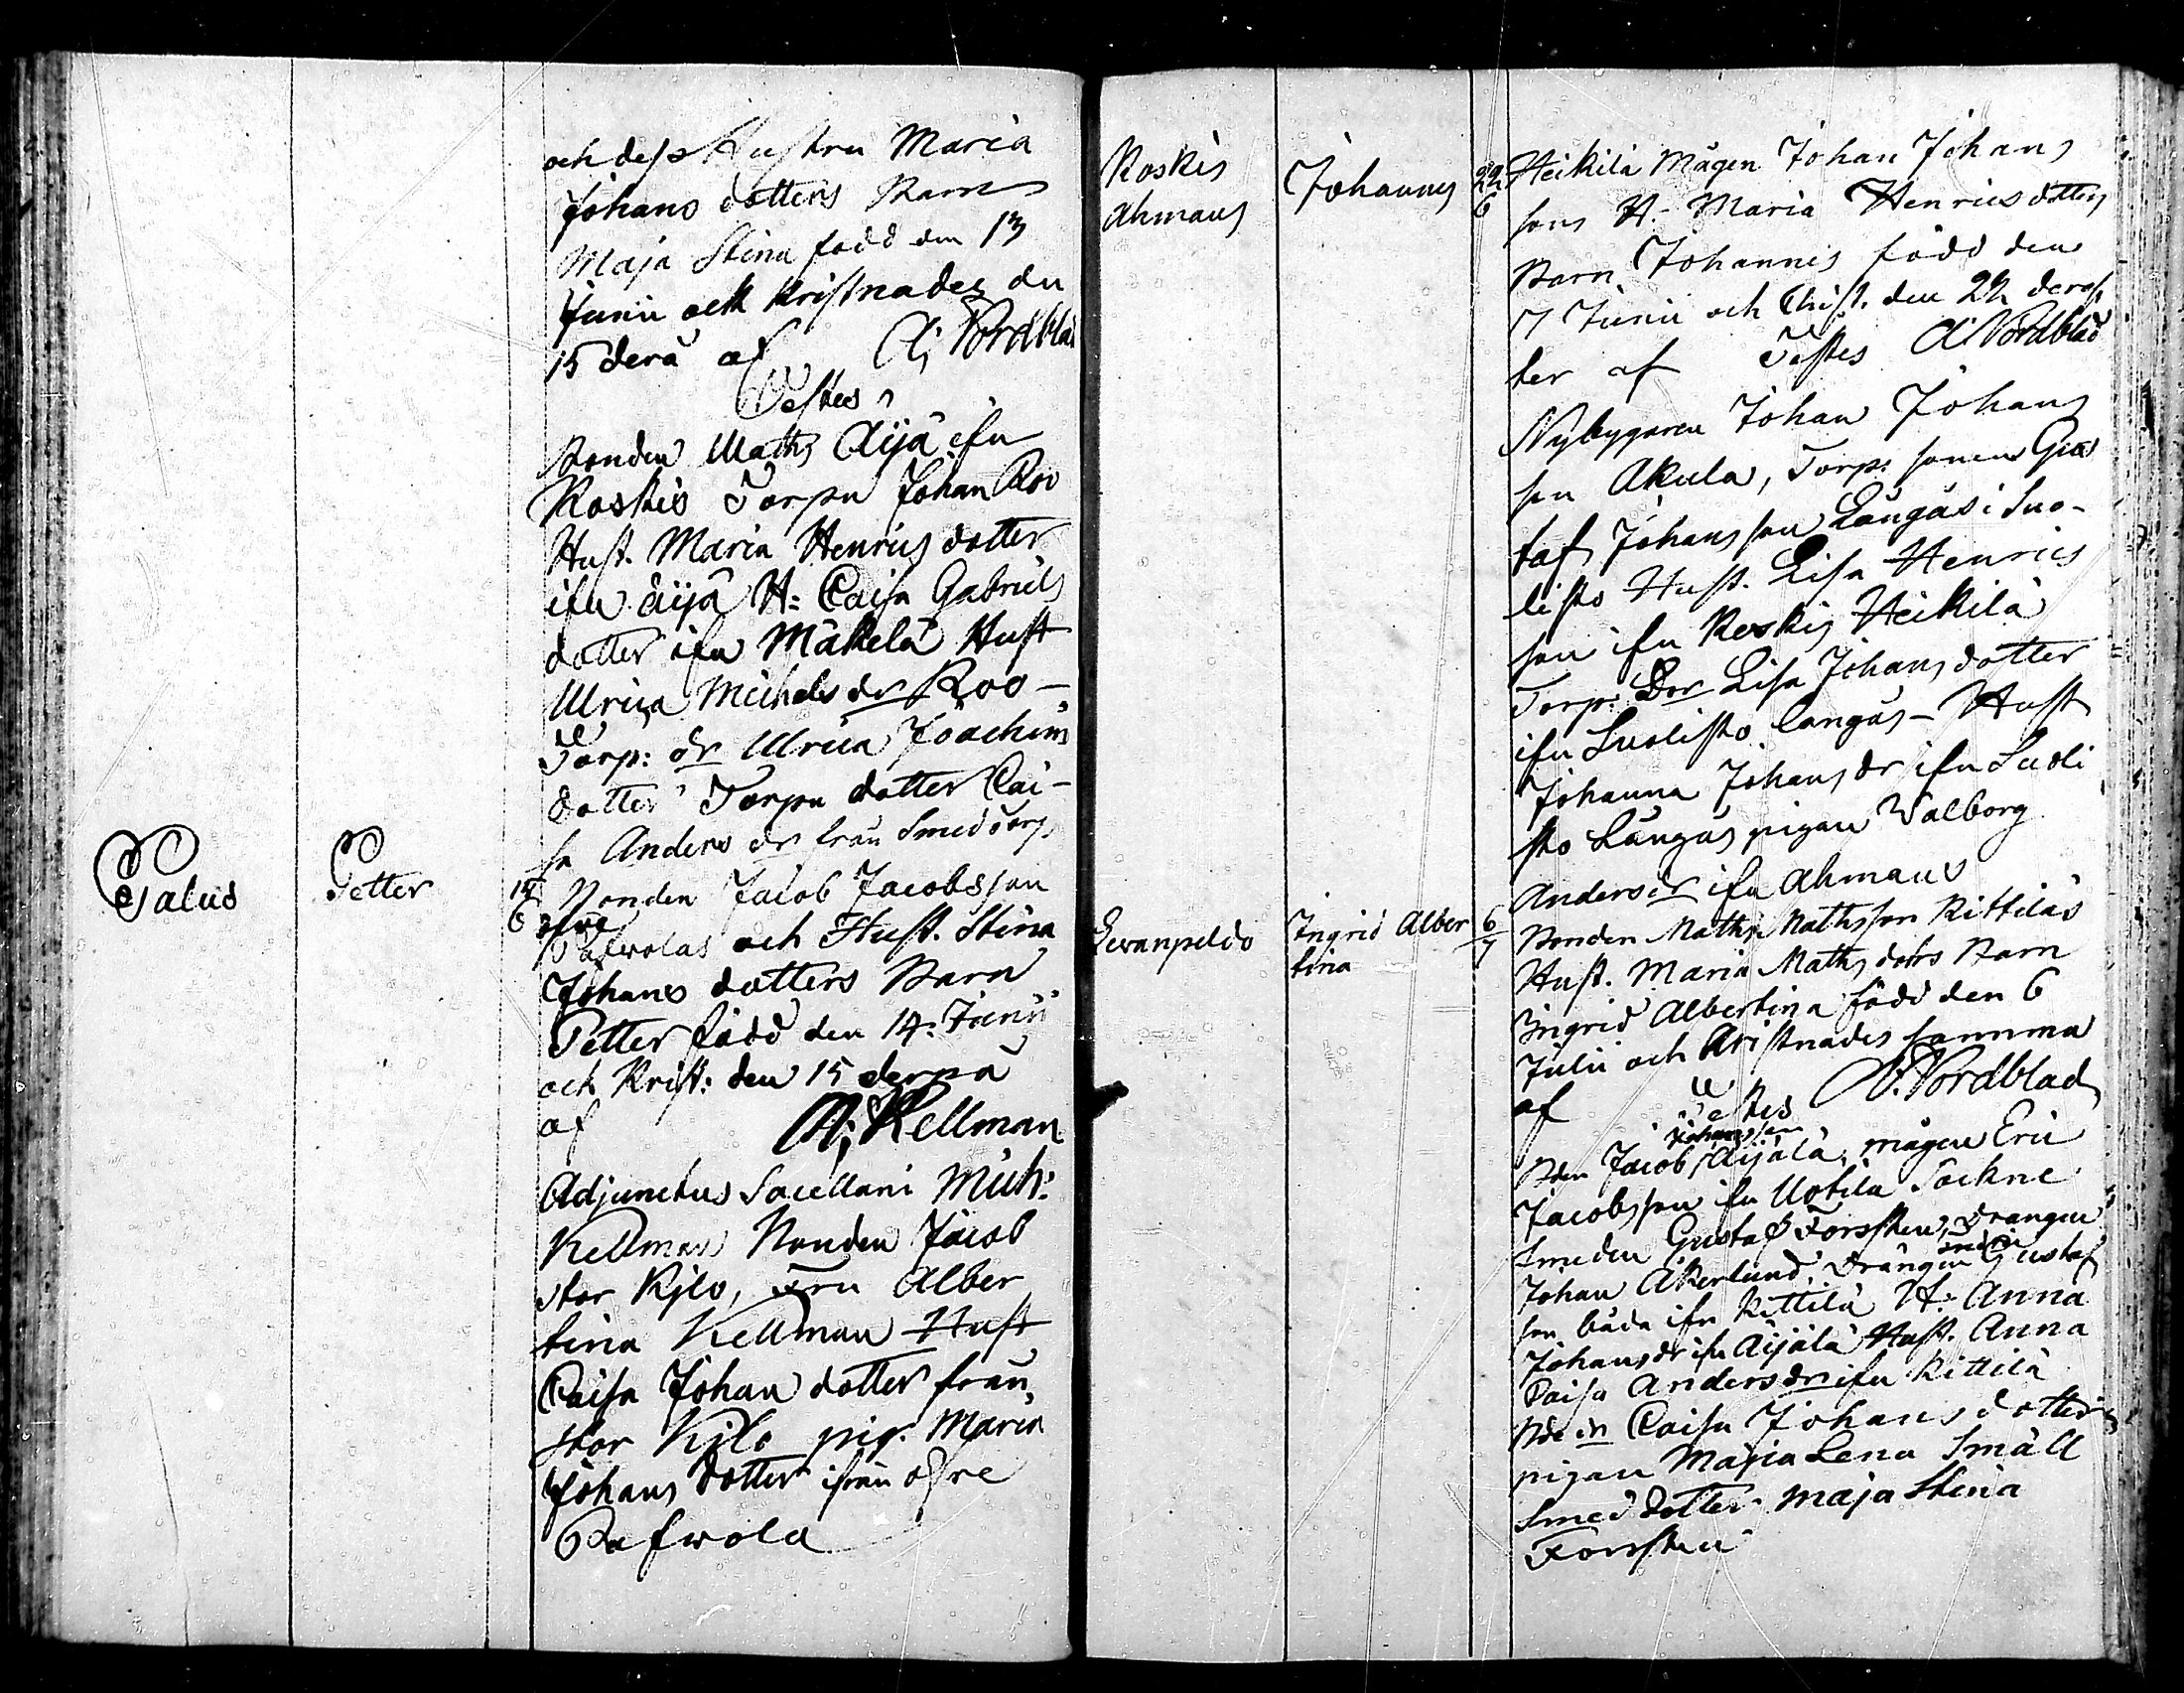 och dess Hustru Maria
Johans dotters Barn
Maja Stina född den 13
Junii och kristnades den
15 derå af A; Nordblad
Testes
Bonden Maths Äijä ifrn
Koskis Torpn Johan Roo
Hust. Maria Henrics dotter
ifrn äijä H: Caisa Gabriels
dotter ifrn Mäkelä Hust
Ulrica Michels dr Roo-
Torp: dr Ulrica Joachims
dotter Torpn dotter Cai-
sa Anders dr från Smedtorp
Palus Petter 14 Bonden Jacob Jacobsson
6 öfre
Pafwolas och Hust. Stina
Johans dotters Barn
Petter född den 14. Junii
och Krist: den 15 derpå
af A; Kellman
Adjunctus Sacellani Mich:
Kellman Bonden Jacob
Stor Kjlo, Fru Alber
tina Kellman Hust
Caisa Johan dotter från
Stor Kjlo pig. Maria
Johans dotter ifrån öfre
Pafwola
Koskis Johannes 22 Heikilä Mågen Johan Johans
Ahmaus 6 sons H. Maria Henrics dotters
Barn Johannes född den
17 Junii och Christ. den 22 deref
ter af Testes A. Nordblad
Nybyggaren Johan Johans
son Akula, Torp: sonen Gus
taf Johansson Långås i Suo-
listo Hust. Lisa Henrics
son ifrn Koskis Heikilä
Torp: Dor Lisa Johans dotter
ifrn Suolisto långås - Hust
Johanna Johans dr ifrn Suoli
sto Långås pigan Walborg
Anders dr ifrn Ahmaus
Ingrid Alber 6 Bonden Maths Mathsson Kittiläs
tina 7 Hust. Maria Maths dotrs Barn
Ingrid Albertina född den 6
Julii och Kristnades samma
af Testes A. Nordblad
Johansson
Bden Jacob Äijälä, mågen Eric
Jacobsson ifrn Uotila Sockne
Smeden Gustaf Forssten, Drängen
Johan Åkerlund, Drängen Gustaf
son båda ifrn Kittilä H: Anna
Johans dr ifrn Äijälä Hust. Anna
Caisa Anders dr ifrn Kittilä
Caisa Johans dotter
pigan Maria Lena Smäll
Smed dotter Maja Stina
Forssten